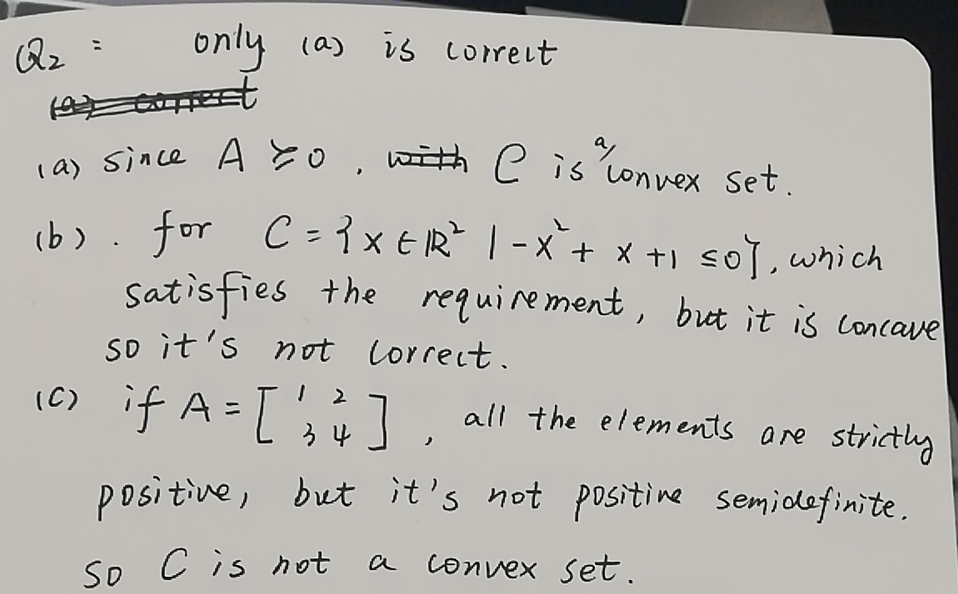 Q2 : only (a) is correct
(a) correct
(a) since A ≽ 0 , with C is a convex set.
(b) . for C = { x ∈ ℝ² | -x² + x + 1 ≤ 0 }, which
satisfies the requirement, but it is concave
so it's not correct.
(C) if A = [ 1 2
3 4 ] , all the elements are strictly
positive, but it's not positive semidefinite.
so C is not a convex set.